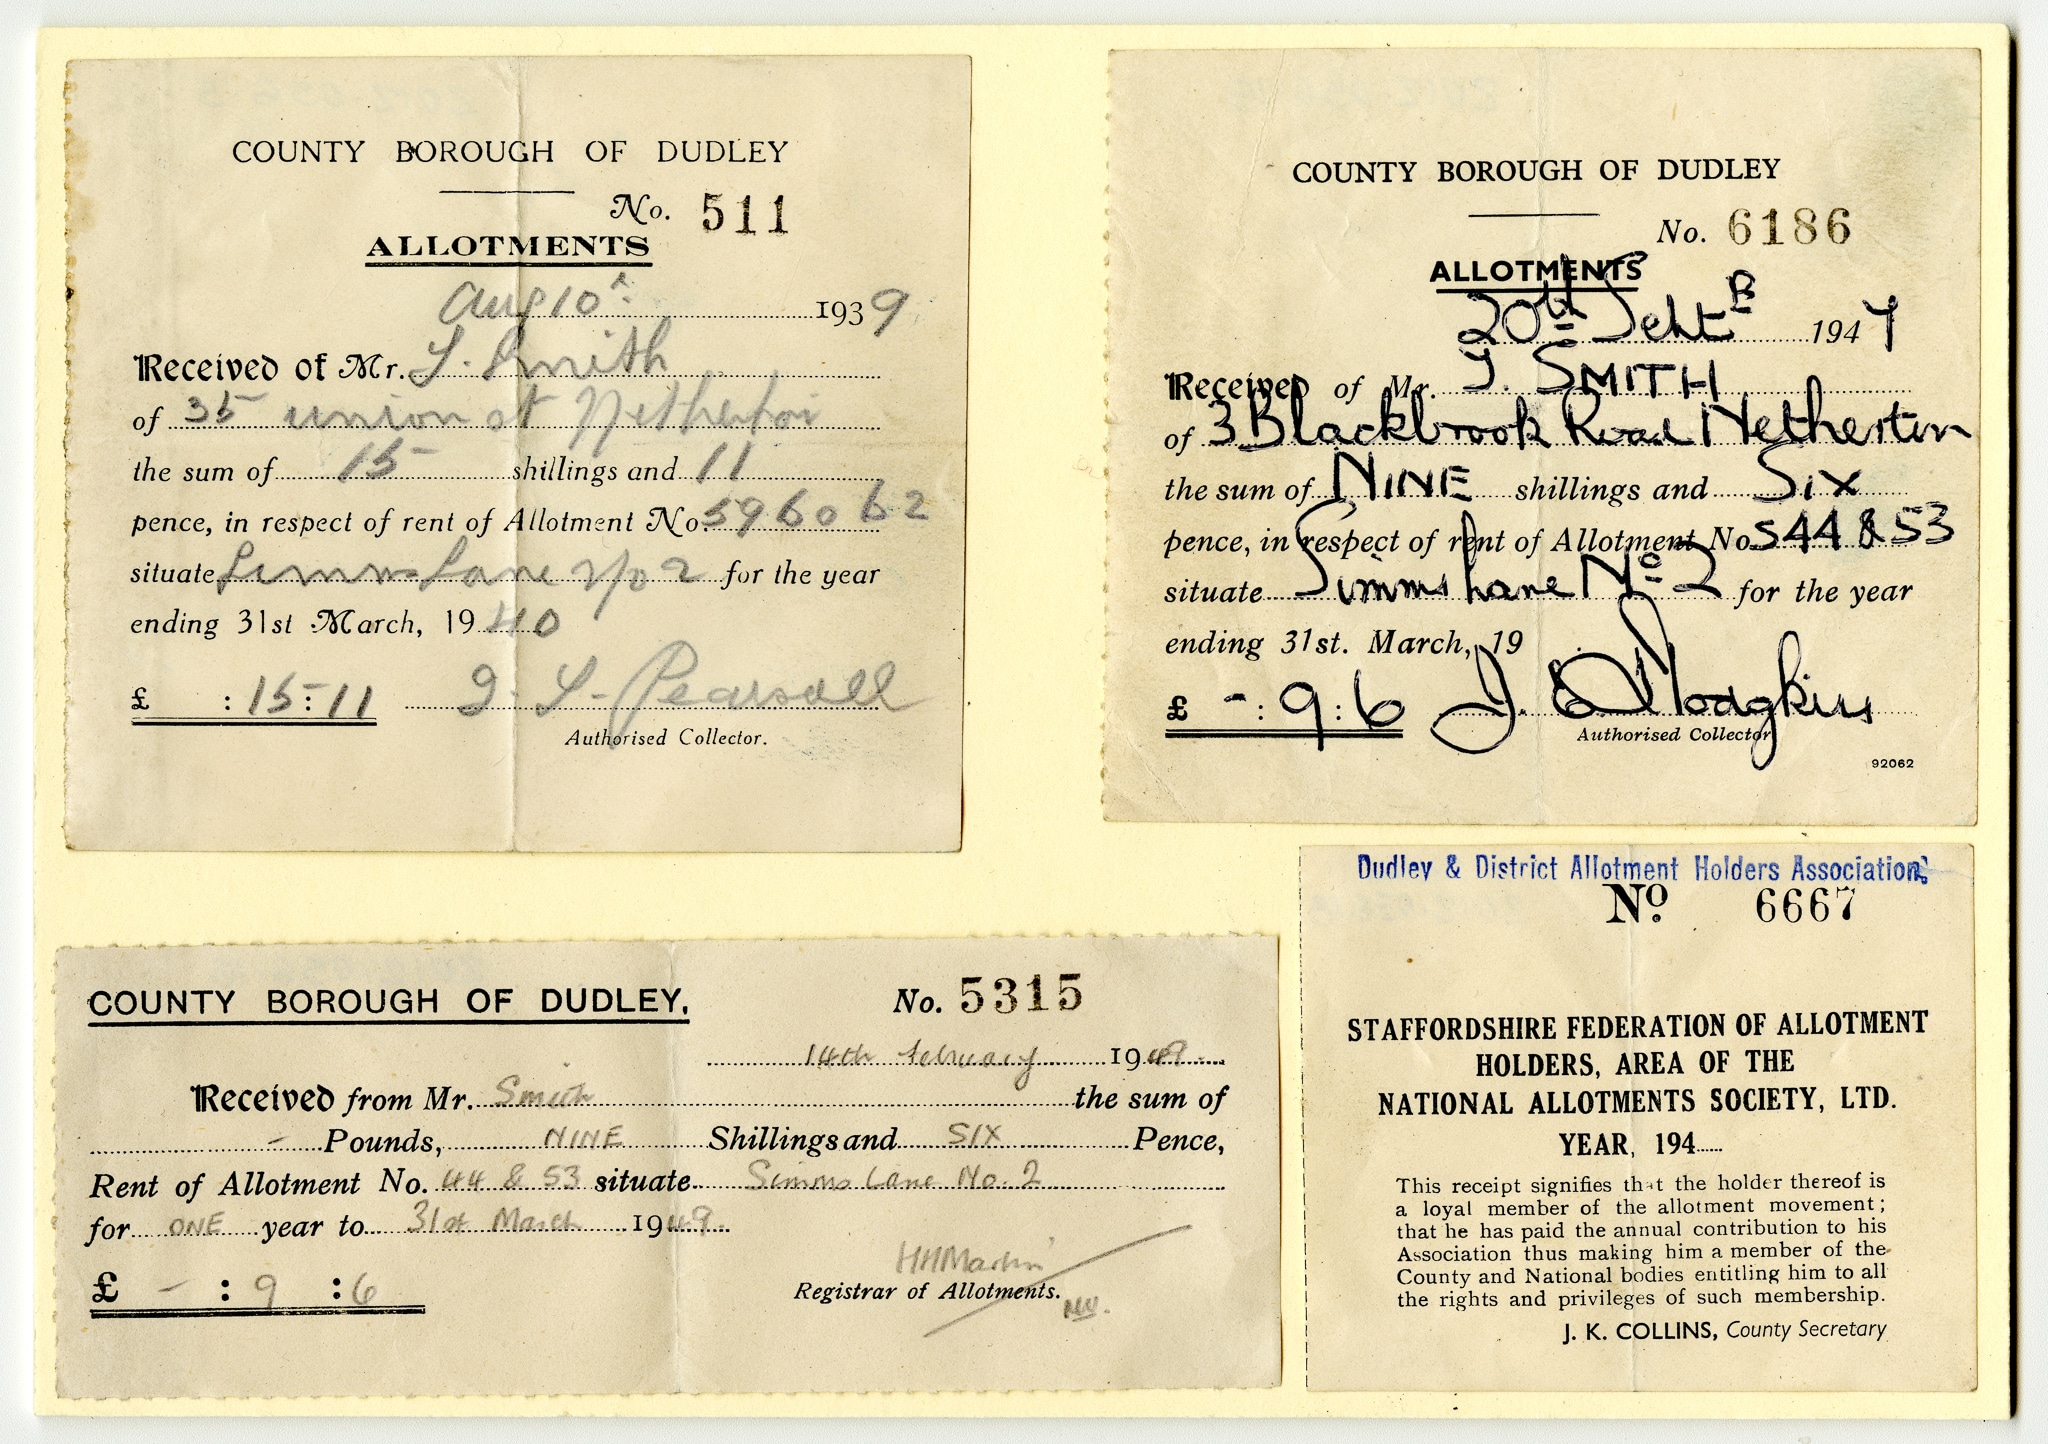 COUNTY BOROUGH OF DUDLEY
No. 511
ALLOTMENTS
Aug 10th 1939
Received of Mr. J. Smith
of 35 union st Netherton
the sum of 15 shillings and 11
pence, in respect of rent of Allotment No. 59 60 62
situate Simms Lane No 2 for the year
ending 31st March, 1940
£ : 15 : 11 J. Pearsall
Authorised Collector.
COUNTY BOROUGH OF DUDLEY
No. 6186
ALLOTMENTS
20th Sept 1947
Received of Mr. J. SMITH
of 3 Blackbrook Road Netherton
the sum of NINE shillings and SIX
pence, in respect of rent of Allotment Nos 44 & 53
situate Simms Lane No 2 for the year
ending 31st. March, 19
£ - : 9 : 6 J. Hodgkiss
Authorised Collector
92062
COUNTY BOROUGH OF DUDLEY.
No. 5315
14th February 1949
Received from Mr. Smith the sum of
- Pounds, NINE Shillings and SIX Pence,
Rent of Allotment No. 44 & 53 situate Simms Lane No. 2
for ONE year to 31st March 1949.
£ - : 9 : 6
HHMartin
Registrar of Allotments.
Dudley & District Allotment Holders Association.
No. 6667
STAFFORDSHIRE FEDERATION OF ALLOTMENT
HOLDERS, AREA OF THE
NATIONAL ALLOTMENTS SOCIETY, LTD.
YEAR, 194......
This receipt signifies that the holder thereof is
a loyal member of the allotment movement;
that he has paid the annual contribution to his
Association thus making him a member of the
County and National bodies entitling him to all
the rights and privileges of such membership.
J. K. COLLINS, County Secretary